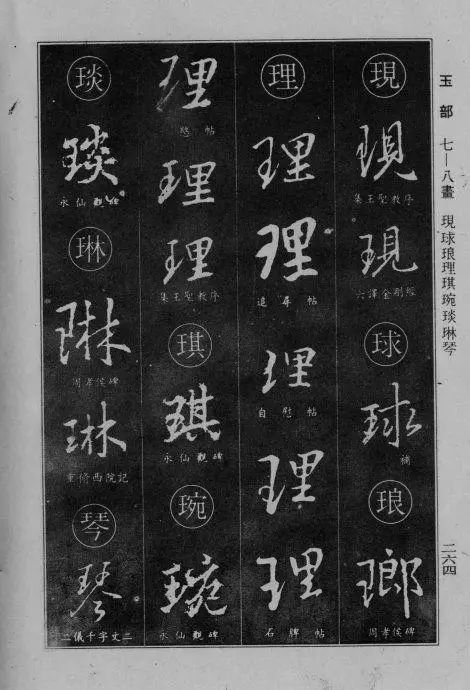 玉部 七—八畫 現球琅理琪琬琰琳琴
二六四
現
現
集王聖教序
現
六譯金剛經
球
球
補
琅
瑯
周孝侯碑
理
理
理
追尋帖
理
自慰帖
理
理
石脾帖
理
帖
理
理
集王聖教序
琪
琪
永仙觀碑
琬
琬
永仙觀碑
琰
琰
永仙觀碑
琳
琳
周孝侯碑
琳
重修西院記
琴
琴
二儀千字文二